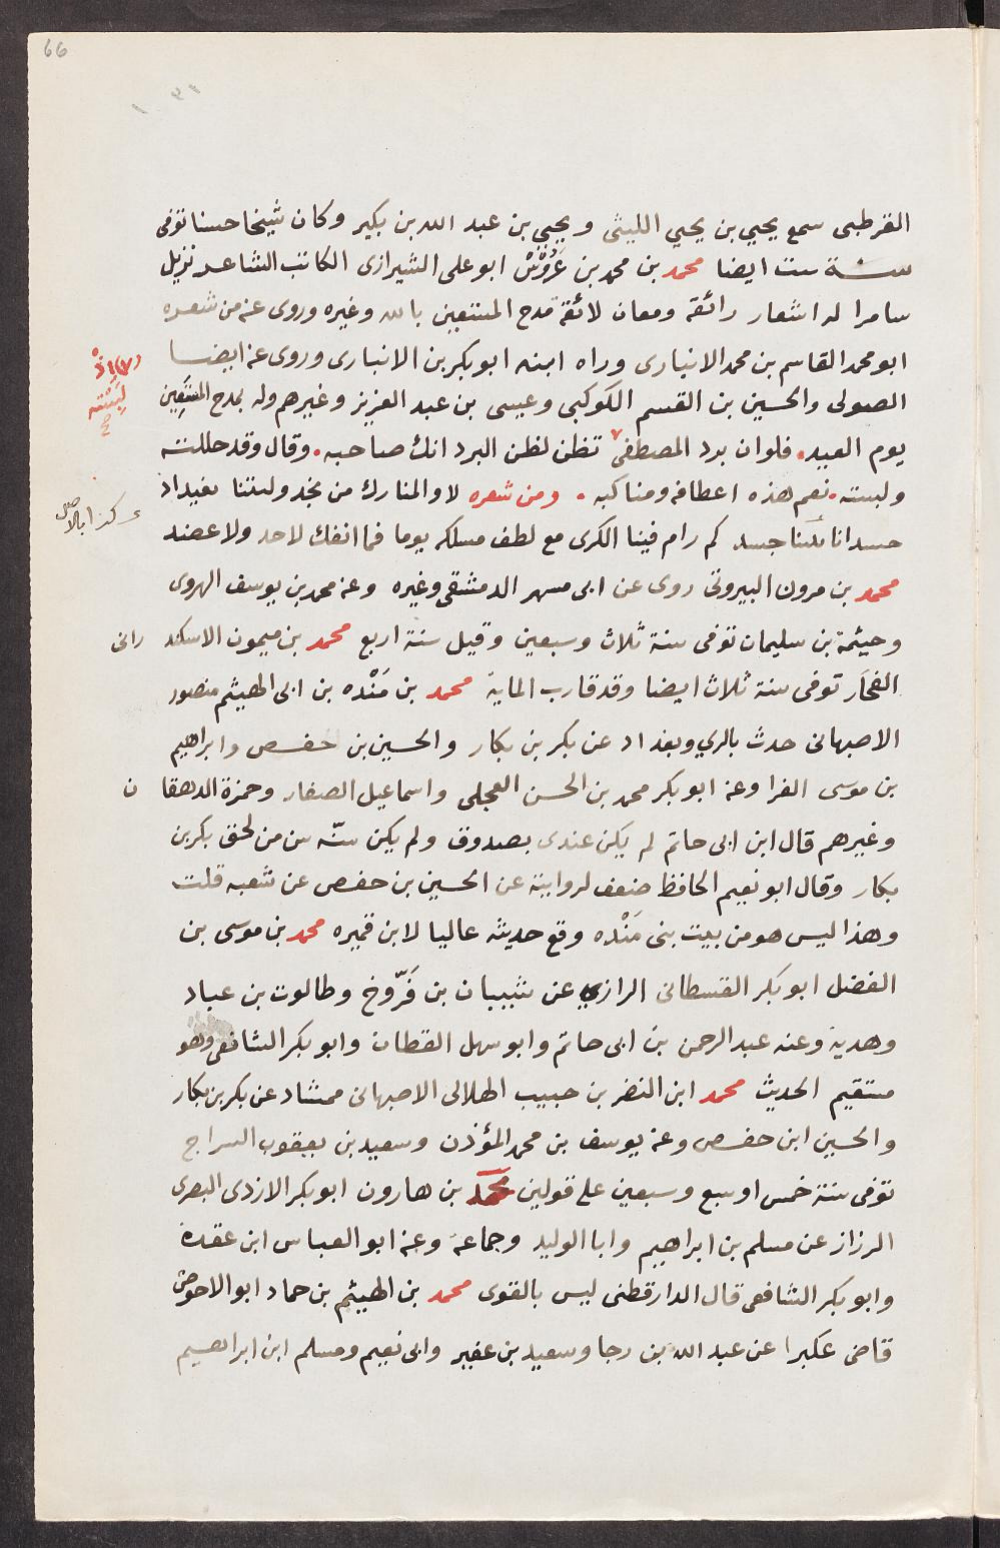 66
القرطبى سمع يحيي بن يحيي الليثى ويحيى بن عبد الله بن بكير وكان شيخا حسنا توفى
سنة ست ايضا محمد بن محمد بن عَرُوْس ابو على الشيرازى الكاتب الشاعر نزيل
سامرا له اشعار رائقة ومعان لائقة مدح المستعين بالله وغيره وروى عنه من شعره
ابو محمد القاسم بن محمد الانبارى وراه ابنه ابو بكر بن الانبارى وروى عنه ايضا
الصولى والحسين بن القسم الكوكبى وعيسى بن عبد العزيز وغيرهم وله يمدح المستعين
يوم العيد. فلوان برد المصطفى تظن لظن البرد انك صاحبه. وقال وقد حللته
ولبسته. نعم هذه اعطافه ومناكبه. ومن شعره لا والمنازل من نجد وليلتنا بفيد اذ
جسدانا بيننا جسد كم رام فينا الكرى مع لطف مسلكه يوما فما انفك لا حد ولا عضد
اذ
لبسته
صح
كذا بالاصل
محمد بن مرون البيروتى روى عن ابى مسهر الدمشقى وغيره وعنه محمد بن يوسف الهروى
وحيثمة بن سليمان توفى سنة ثلاث وسبعين وقيل سنة اربع محمد بن ميمون الاسكند رانى
الفخار توفى سنة ثلاث ايضا وقد قارب الماية محمد بن مَنْده بن ابى الهيثم منصور
الاصبهانى حدث بالري وبغداد عن بكر بن بكار والحسين بن حفص وابراهيم
بن موسى الفرا وعنه ابو بكر محمد بن الحسن العجلى واسماعيل الصفار وحمزة الدهقا ن
وغيرهم قال ابن ابى حاتم لم يكن عندى بصدوق ولم يكن سنّه سن من لحق بكر بن
بكار وقال ابو نعيم الحافظ ضعف لروايته عن الحسين بن حفص عن شعبه قلت
وهذا ليس هو من بيت بنى مَنْده وقع حديثه عاليا لابن قميره محمد بن موسى بن
الفضل ابو بكر القسطانى الرازي عن شيبان بن فَرّوخ وطالوت بن عباد
وهدبة وعنه عبد الرحمن بن ابى حاتم وابو سهل القطان وابو بكر الشافعى وهو
مستقيم الحديث محمد ابن النضر بن حبيب الهلالى الاصبهانى ممشاد عن بكر بن بكار
والحسين ابن حفص وعنه يوسف بن محمد المؤذن وسعيد بن يعقوب السراج
توفى سنة خمس او سبع وسبعين على قولين محمد بن هارون ابو بكر الازدى البصرى
الرزاز عن مسلم بن ابراهيم وابا الوليد وجماعة وعنه ابو العباس ابن عقدة
وابو بكر الشافعى قال الدارقطنى ليس بالقوى محمد بن الهيثم بن حماد ابو الاحوص
قاضى عكبرا عن عبد الله بن رجا وسعيد بن عفير وابى نعيم ومسلم ابن ابراهيم